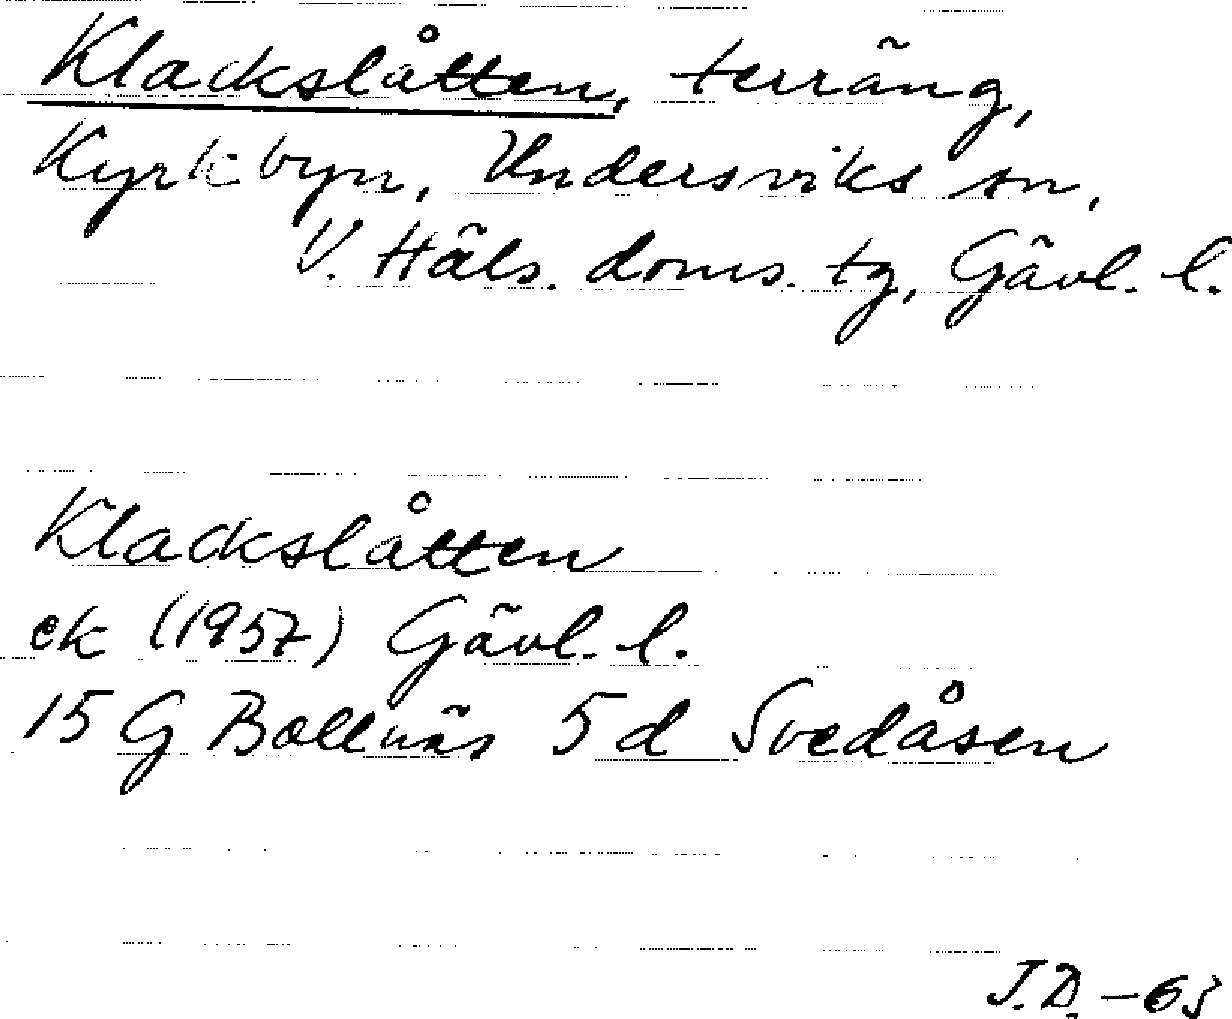 Klackslåtten, terräng,
Kyrkbyn, Undersviks sn,
V. Häls. doms. tg, Gävl. l.
Klackslåtten
ek (1957) Gävl. l.
15 G Bollnäs 5 d Svedåsen
J.D. -63